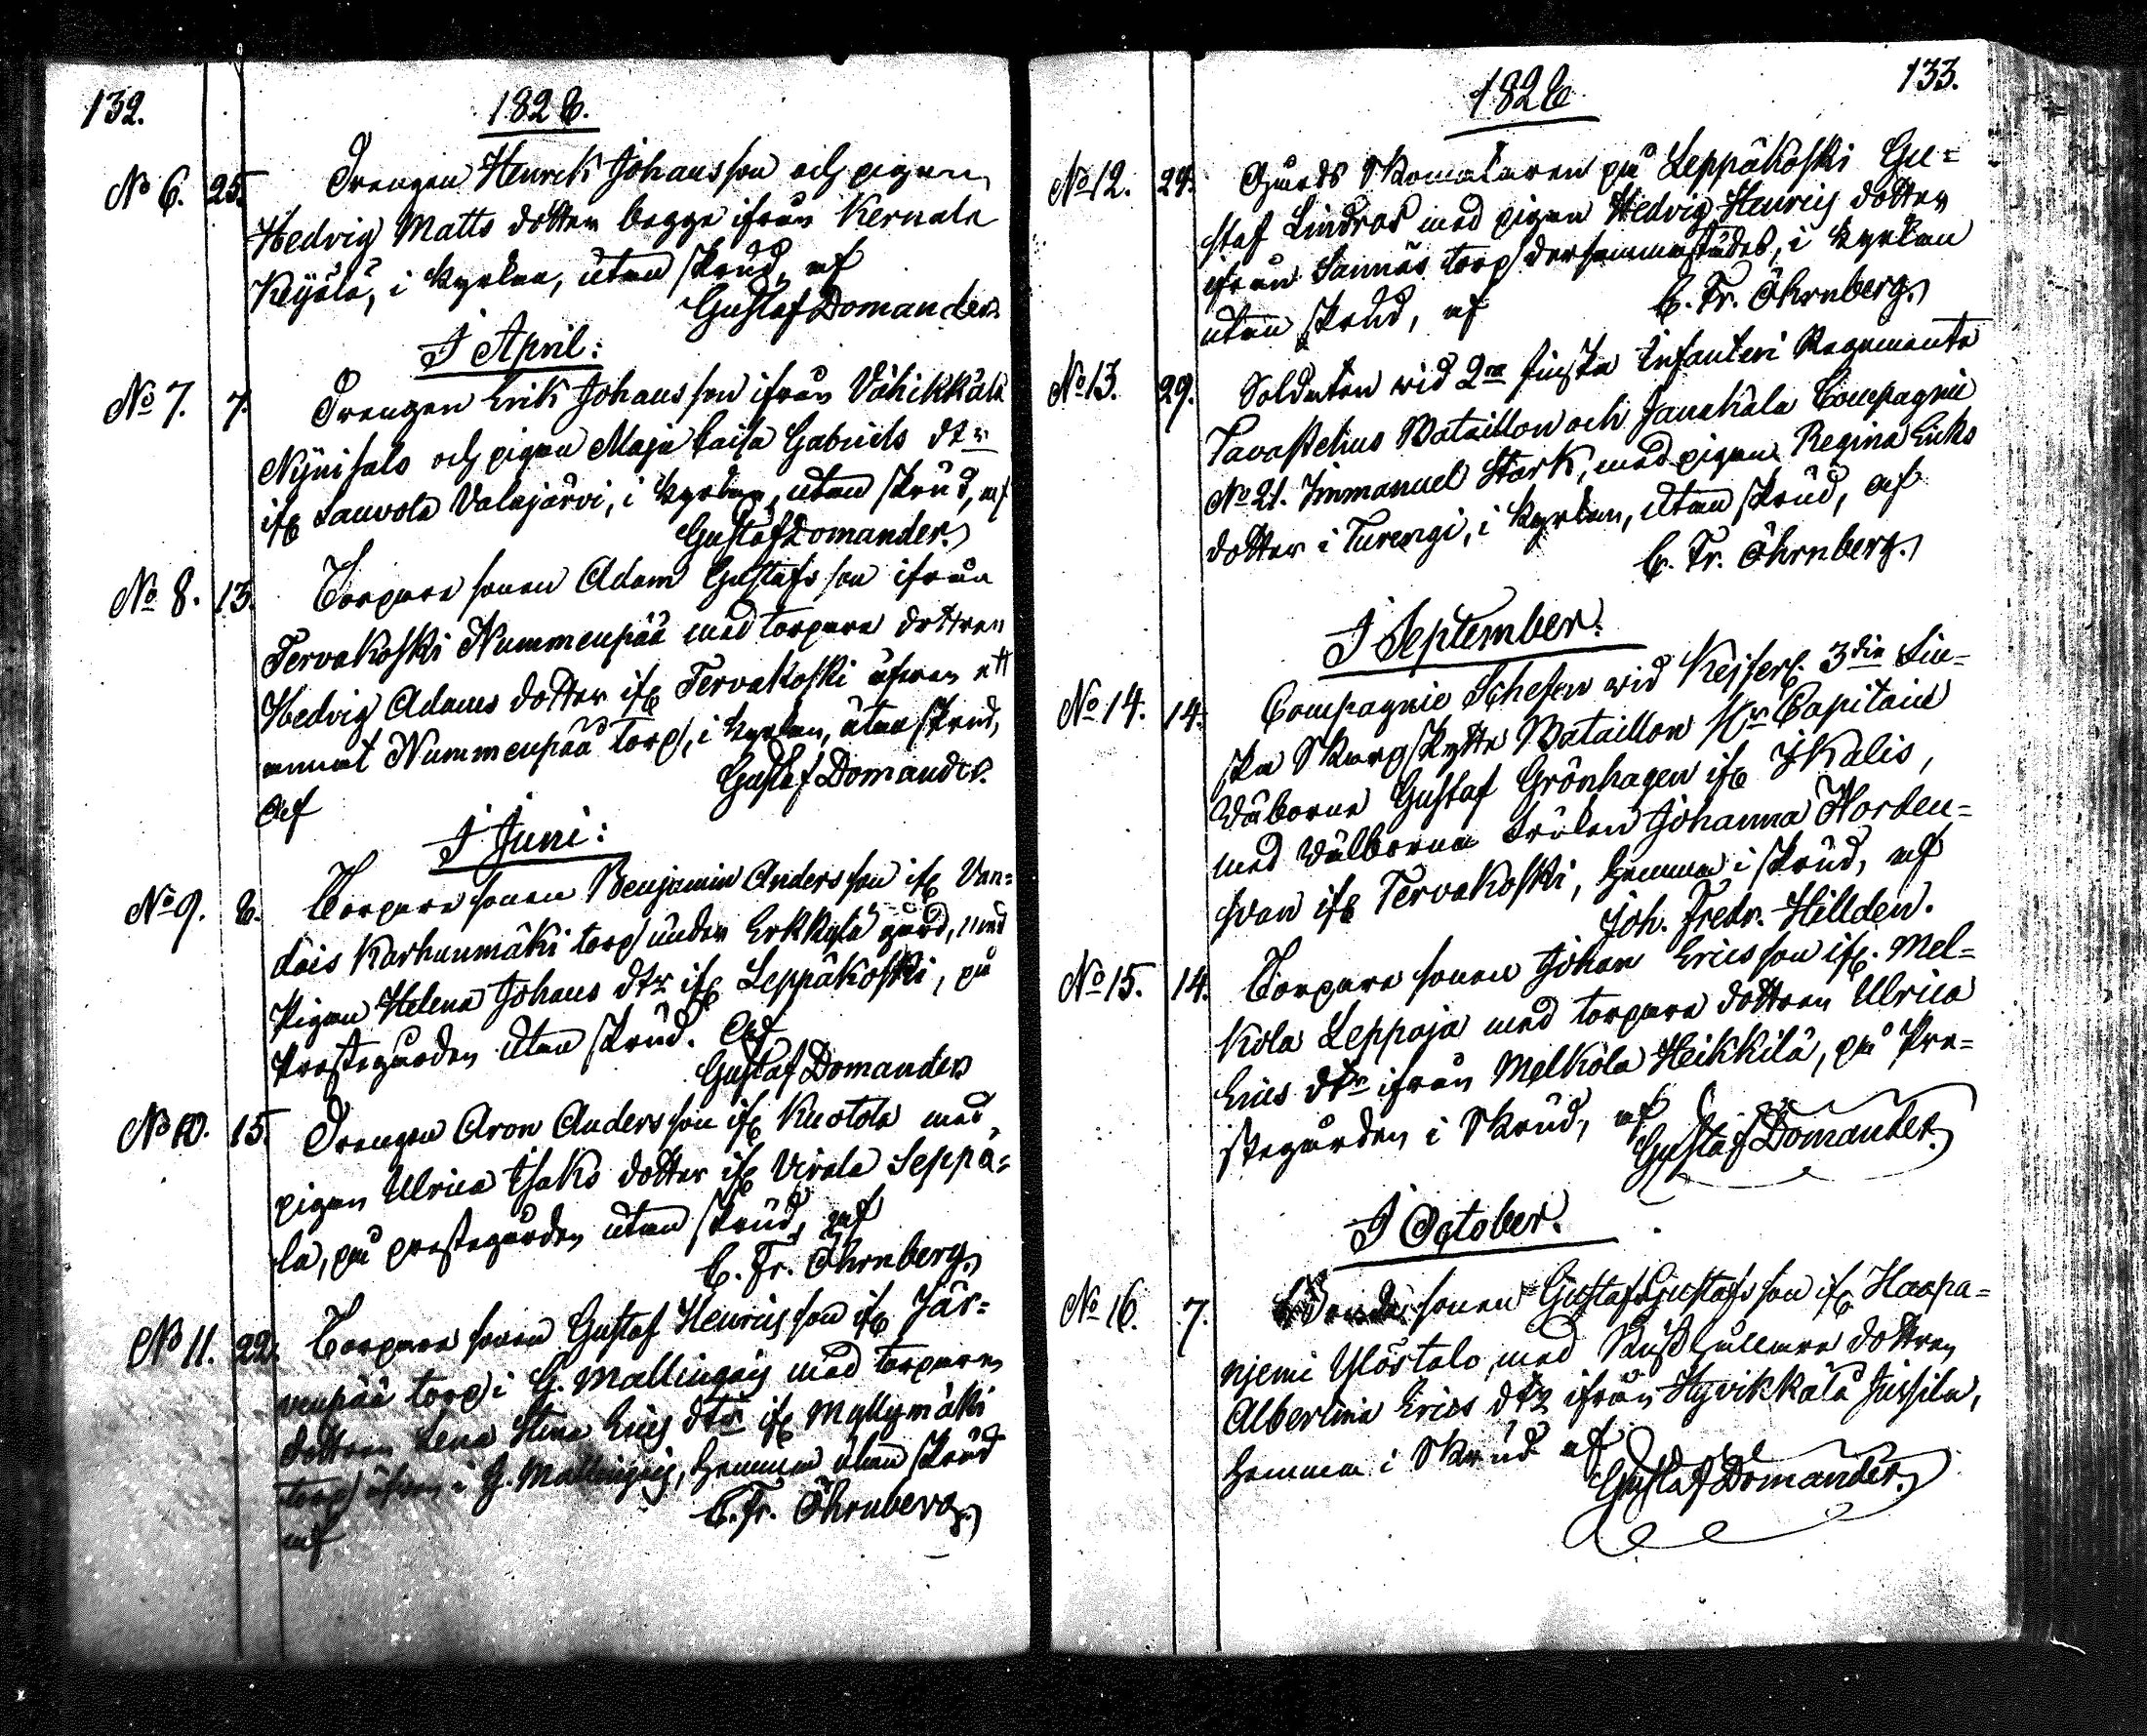 132.
1826.
No 6. 25. Drengen Henrik Johansson och pigan
Hedvig Matts dotter begge ifrån Kernala
Keijälä, i kyrkan, utan skrud, af
Gustaf Domander.
I April:
No 7. 7. Drengen Erik Johansson ifrån Vähikkälä
Nÿnisalo och pigan Maja Caisa Gabriels dtr
ifr Sauvola Valajärvi, i kyrkan, utan skrud, af
Gustaf Domander.
No 8. 13. Torpare sonen Adam Gustafsson ifrån
Tervakoski Nummenpää med torpare dottren
Hedvig Adams dotter ifr Tervakoski äfven ett
annat Nummenpää torp, i kyrkan, utan skrud,
af Gustaf Domander.
I Juni:
No 9. 6. Torpare sonen Benjamin Andersson ifr Van=
dois Karhunmäki torp under Erkkylä gård, med
Pigan Helena Johans dtr ifr Leppäkoski, på
Prestegården utan skrud. Af
Gustaf Domander
No 10. 15. Drengen Aron Andersson ifr Kuotola med
pigan Ulrica Isaks dotter ifr Virala Seppä=
lä, på prestegården utan skrud, af
C. Fr. Öhrnberg.
No 11. 22. Torpare sonen Gustaf Henricsson ifr Jär=
venpää torp i G. Mallingais med torpare
dottren Lena Stina Erics dtr ifr Myllymäki
torp äfven i G. Mallingais, hemma utan skrud
af C. Fr. Öhrnberg.
133.
1826
No 12. 24. Gårds Skomakaren på Leppäkoski Gu=
staf Lindros med pigan Hedvig Henrics dotter
ifrån Sannäs torp dersammastädes, i kyrkan
utan skrud, af C. Fr. Öhrnberg.
No 13. 29. Soldaten vid 2ra finska Infanteri Regemente
Tavastehus Bataillon och Janakala Compagnie
No 21. Immanuel Stark, med pigan Regina Eriks
dotter i Turengi, i kyrkan, utan skrud, af
C. Fr. Öhrnberg.
I September.
No 14. 14. Compagnie Schefen vid Kejserl. 3die Fin=
ska Skarpskytte Bataillon Hr Capitaine
Wälborne Gustaf Grönhagen ifr Ikalis,
med Wälborna Fröken Johanna Norden=
svan ifr Tervakoski, hemma i skrud, af
Joh. Fredr. Hillden.
No 15. 14. Torpare sonen Johan Ericsson ifr. Mel=
kola Leppoja med torpare dottren Ulrica
Erics dtr ifrån Melkola Heikkilä, på Pre=
stegården i Skrud, af
Gustaf Domander.
I October.
No 16. 7. Bonde sonen Gustaf Gustafsson ifr Haapa=
njemi Ylöstalo, med Rusthållare dottren
Albertina Erics dtr ifrån Hyvikkälä Jussila,
hemma i Skrud af
Gustaf Domander.